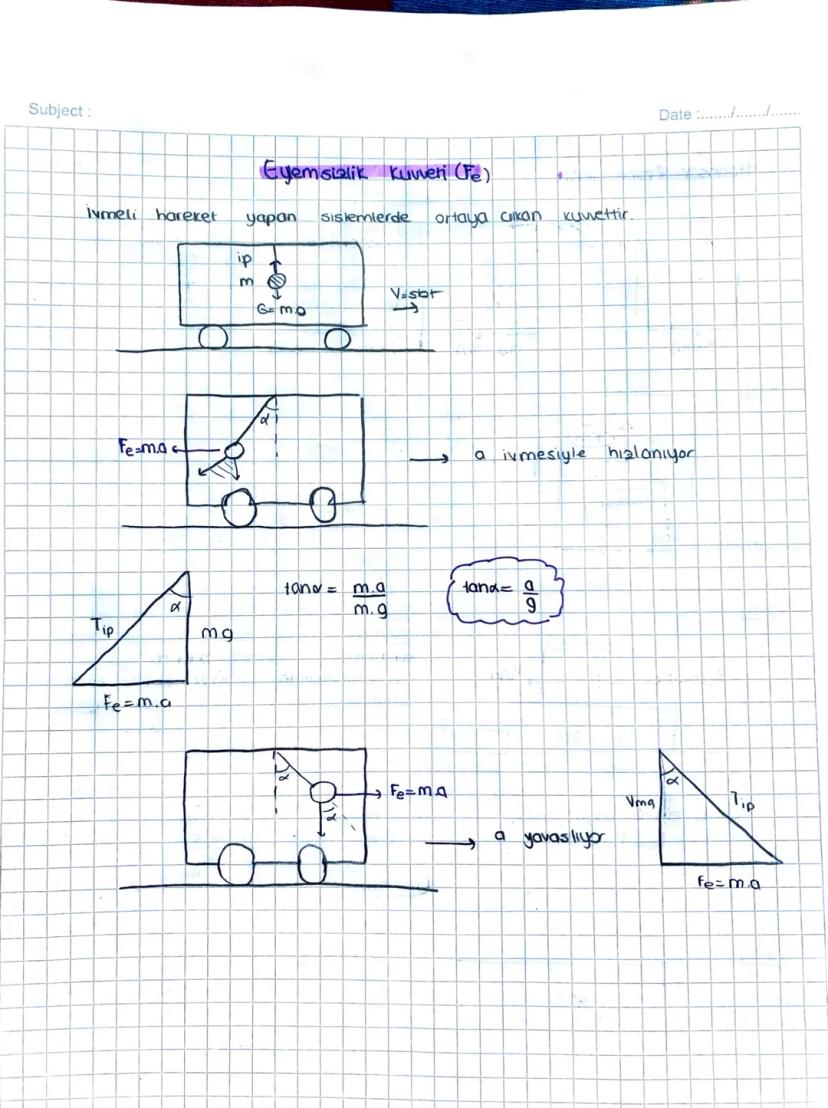 Subject :
Date :......./......./.......
Eyemsizlik kuvveti (Fe)
ivmeli hareket yapan sistemlerde ortaya çıkan kuvvettir.
ip
m
G= m.g
V=sbt
α
Fe=m.a
a ivmesiyle hızlanıyor
Tip
α
mg
Fe=m.a
tanα = m.a / m.g
tanα= a / g
α
Fe=ma
α
a yavaslıyor
α
Tip
Fe=m.a